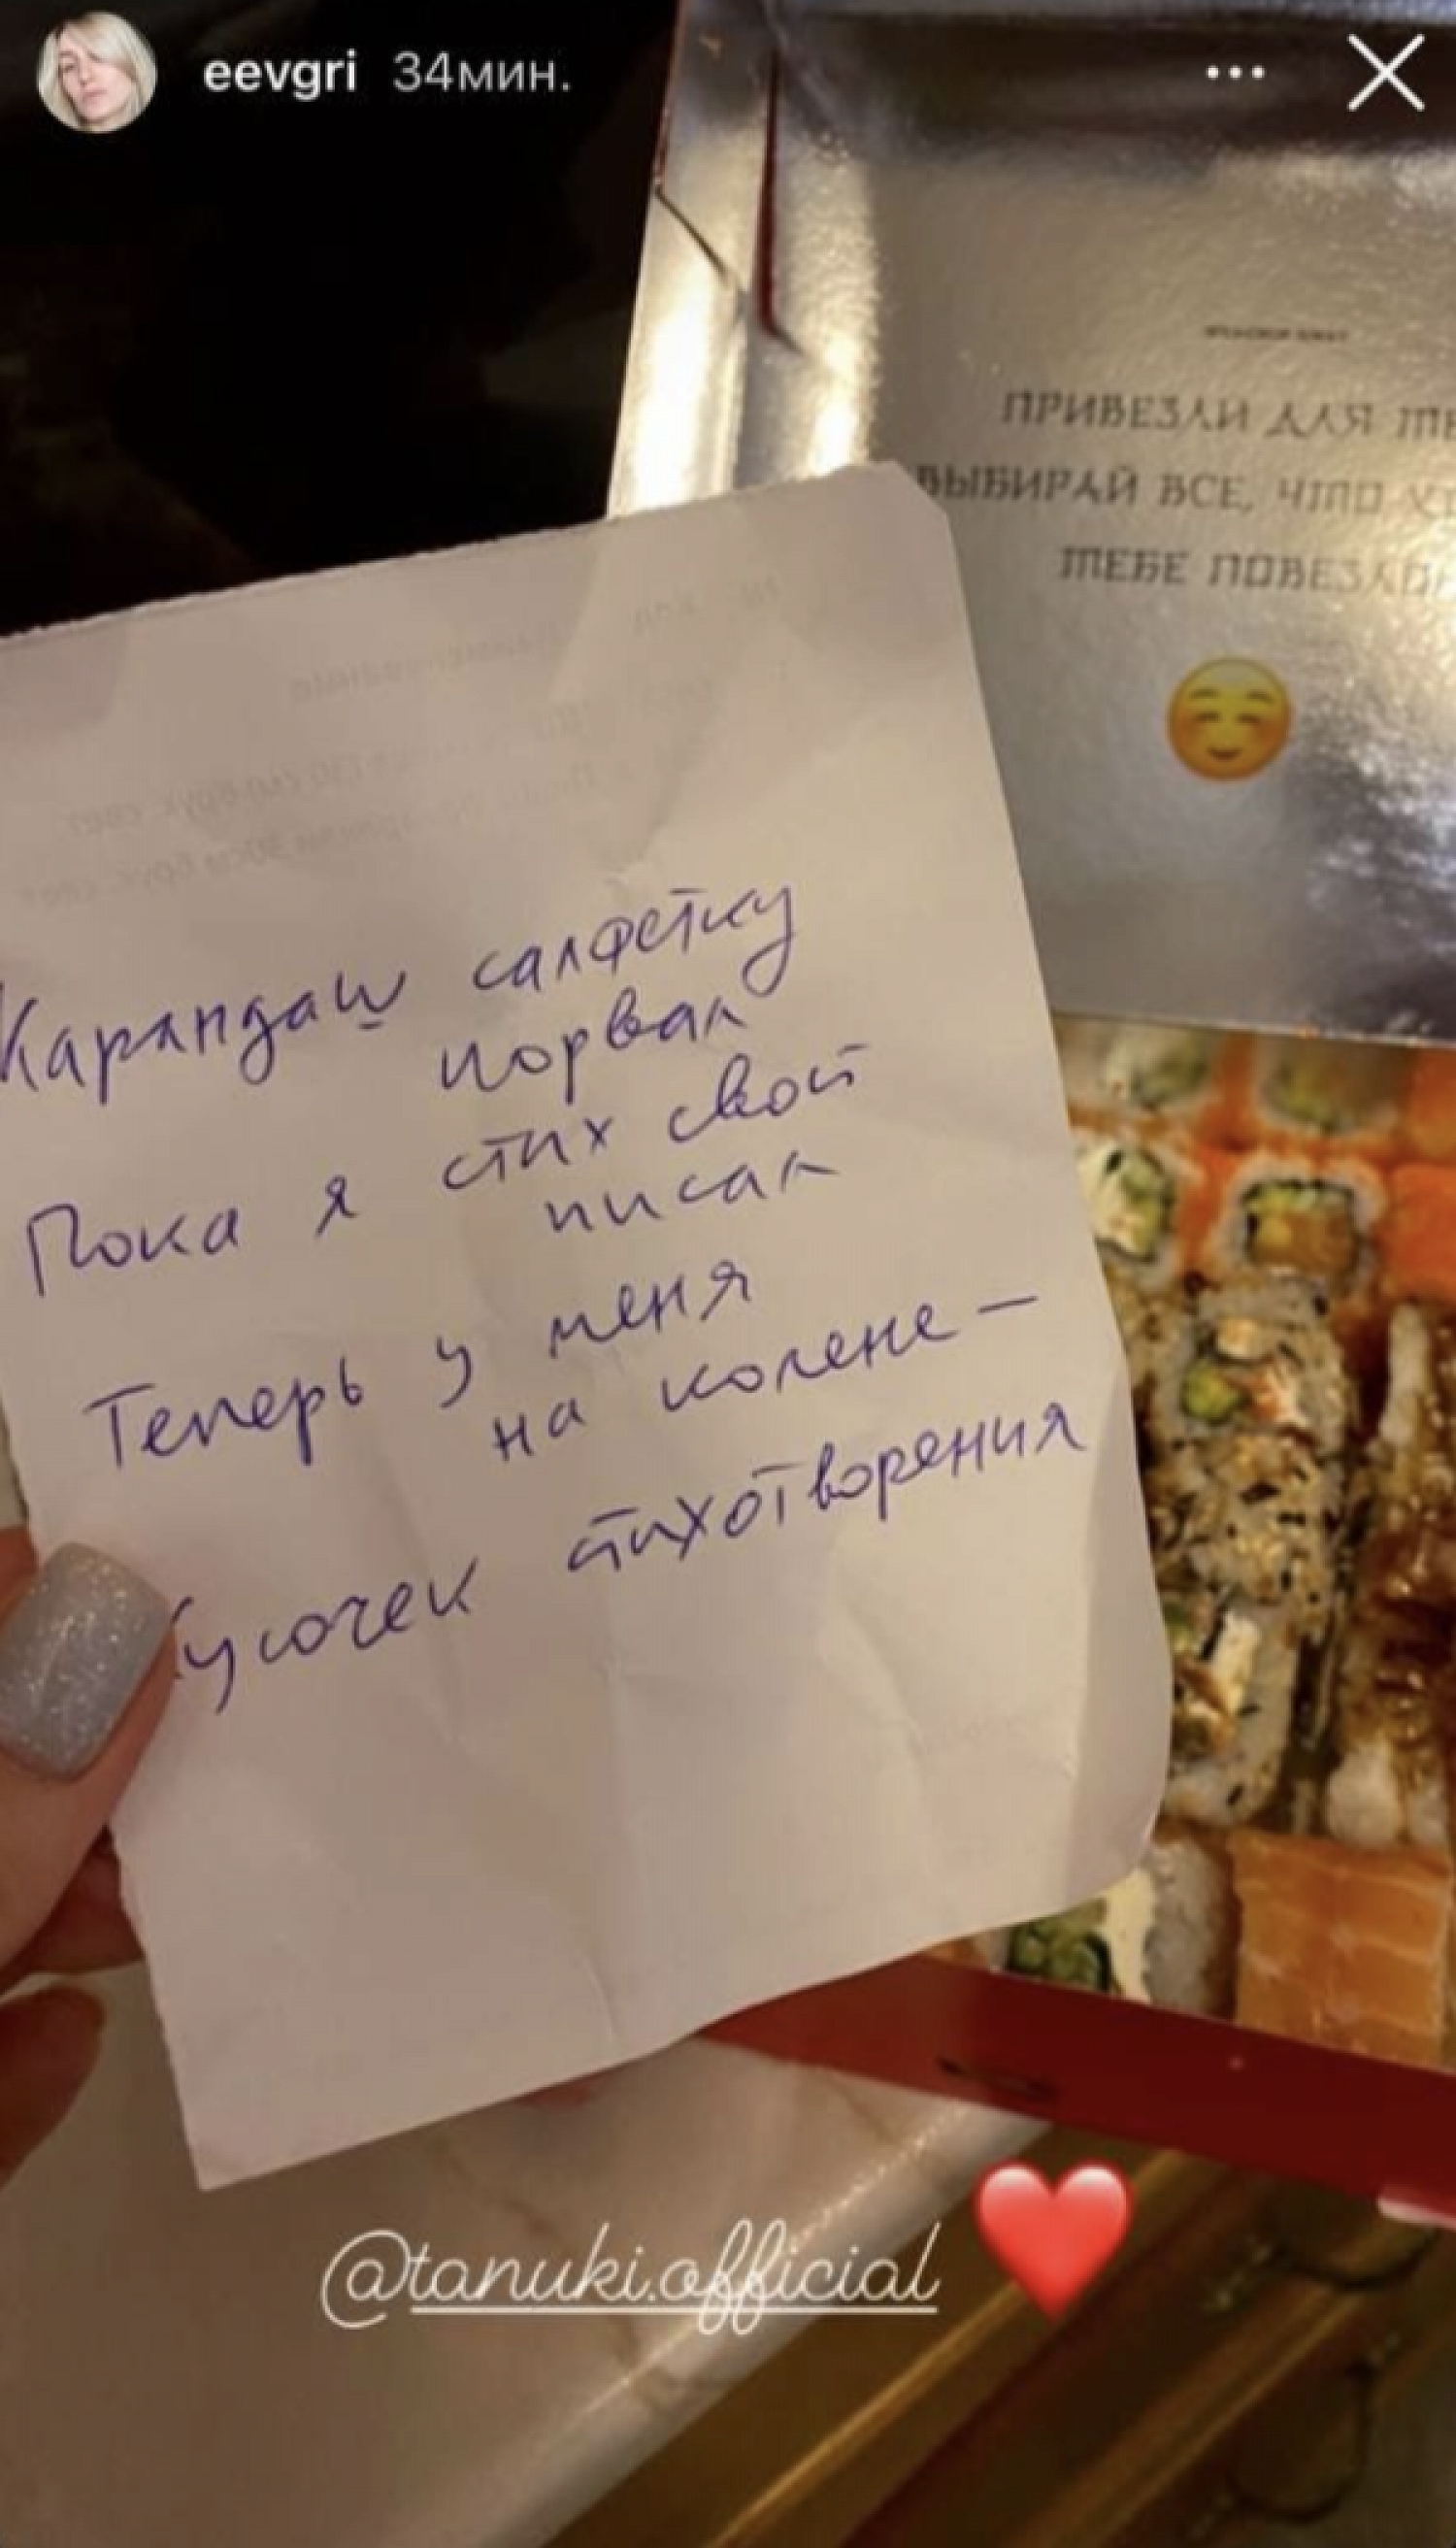 eevgri 34мин.
ПРИВЕЗЛИ ДЛЯ
ВЫБИРАЙ ВСЕ, ЧТО
ТЕБЕ ПОВЕЗЛО
Карандаш салфетку
порвал
Пока я стих свой
писал
Теперь у меня
на колене —
Кусочек стихотворения
@tanuki.official